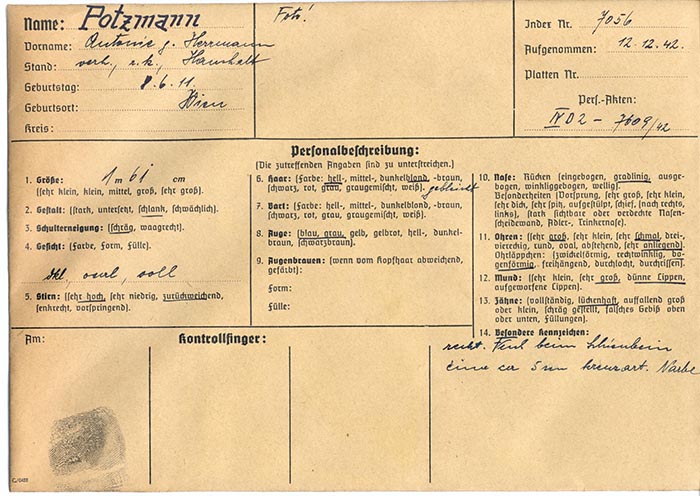 Name: Potzmann
Vorname: Antonie g. Herrmann
Stand: verh., r.k., Haushalt
Geburtstag: 8.6.11
Geburtsort: Wien
Kreis:
Foto!
Index Nr. 7056
Aufgenommen: 12.12.42.
Platten Nr.
Pers.-Akten:
IV D2 – 7609/42
Personalbeschreibung:
(Die zutreffenden Angaben sind zu unterstreichen.)
1. Größe: 1 m 61 cm
(sehr klein, klein, mittel, groß, sehr groß).
2. Gestalt: (stark, untersetzt, schlank, schwächlich).
3. Schulterneigung: (schräg, waagrecht).
4. Gesicht: (Farbe, Form, Fülle).
dkl, oval, voll
5. Stirn: (sehr hoch, sehr niedrig, zurückweichend,
senkrecht, vorspringend).
6. Haar: (Farbe: hell-, mittel-, dunkelblond, -braun,
schwarz, rot, grau, graugemischt, weiß). gebleicht
7. Bart: (Farbe: hell-, mittel-, dunkelblond, -braun,
schwarz, rot, grau, graugemischt, weiß).
8. Auge: (blau, grau, gelb, gelbrot, hell-, dunkel-
braun, schwarzbraun).
9. Augenbrauen: (wenn vom Kopfhaar abweichend,
gefärbt):
Form:
Fülle:
10. Nase: Rücken (eingebogen, gradlinig, ausge-
bogen, winkliggebogen, wellig).
Besonderheiten (Vorsprung, sehr groß, sehr klein,
sehr dick, sehr spitz, aufgestülpt, schief, [nach rechts,
links], stark sichtbare oder verdeckte Nasen-
scheidewand, Adler-, Trinkernase).
11. Ohren: (sehr groß, sehr klein, sehr schmal, drei-,
viereckig, rund, oval, abstehend, sehr anliegend).
Ohrläppchen: (zwickelförmig, rechtwinklig, bo-
genförmig, freihängend, durchlocht, durchrissen).
12. Mund: (sehr klein, sehr groß, dünne Lippen,
aufgeworfene Lippen).
13. Zähne: (vollständig, lückenhaft, auffallend groß
oder klein, schräg gestellt, falsches Gebiß oben
oder unten, Füllungen).
14. Besondere Kennzeichen:
beim
eine ca 5 cm kreuzart. Narbe
Am:
Kontrollfinger: